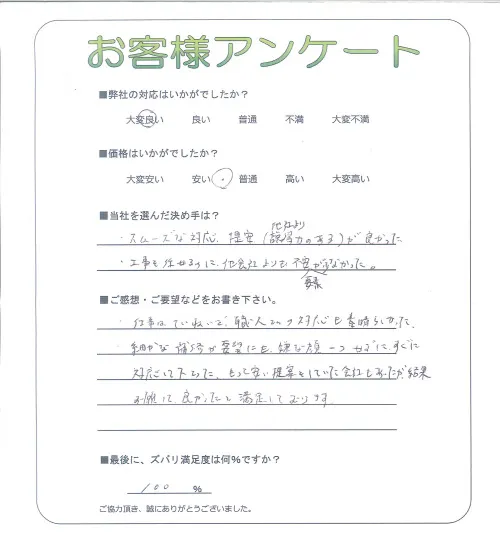 お客様アンケート
■弊社の対応はいかがでしたか？
大変良い 良い 普通 不満 大変不満
■価格はいかがでしたか？
大変安い 安い ・ 普通 高い 大変高い
■当社を選んだ決め手は？
他社より
・スムーズな対応、提案（説得力のある）が良かった
・工事を任せるのに、他会社よりも不安が少なかった。
要素
■ご感想・ご要望などをお書き下さい。
・仕事はていねいで、職人さんの対応も素晴らしかった。
・細かな補修や要望にも、嫌な顔一つせずに、すぐに
対応して下さった。もっと安い提案をしていた会社もあったが結果
お願いして、良かったと満足しております。
■最後に、ズバリ満足度は何％ですか？
100 ％
ご協力頂き、誠にありがとうございました。